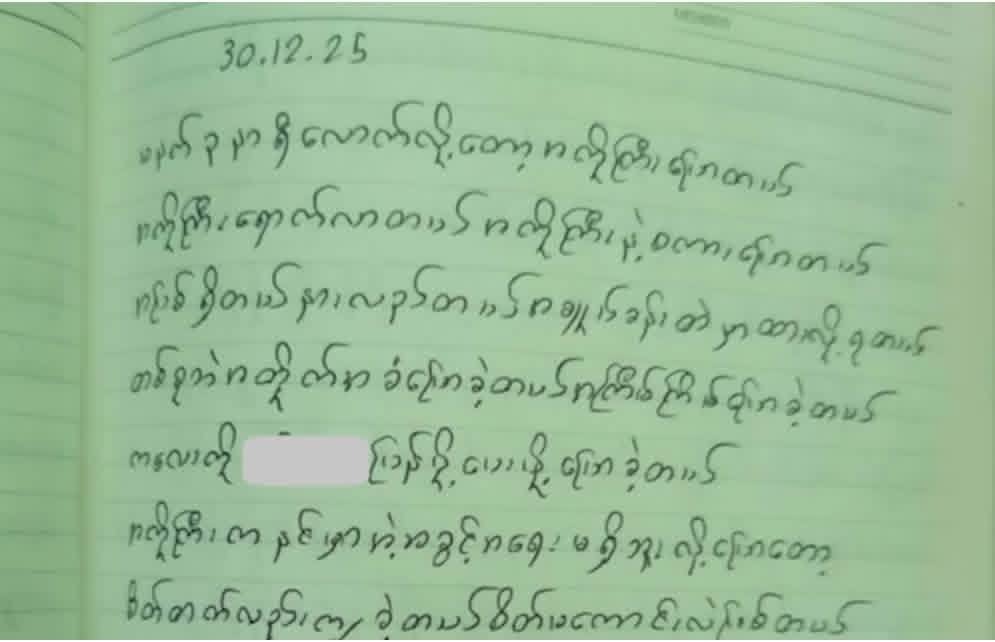 30.12.25
မနက် ၃ နာရီ လောက်လို့တော့ အကိုကြီး ပြောတယ်
အကိုကြီး ရောက်လာတယ် အကိုကြီးနဲ့ စကားပြောတယ်
ရှိတယ် နားလည်တယ် အချုပ်ခန်းထဲမှာထားလို့ရတယ်
တစ်ခုဘဲ အတိုက်အခံပြောခဲ့တယ် အကြိမ်ကြိမ်ပြောခဲ့တယ်
ကလေးကို ပြန်ပို့ပေးဖို့ပြောခဲ့တယ်
အကိုကြီးက နင့်မှာအဲ့အခွင့်အရေးမရှိဘူးလို့ပြောတော့
စိတ်ဓာတ်လည်းကျခဲ့တယ် စိတ်မကောင်းလဲဖြစ်တယ်